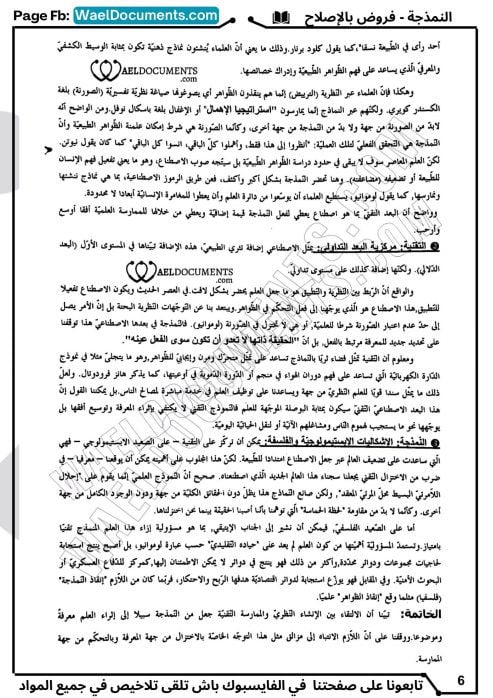 النمذجة - فروض بالإصلاح
Page Fb: WaelDocuments.com
أحد رأى في الطبيعة نسقا"،كما يقول كلود برنار.وذلك ما يعني أنّ العلماء يُنشئون نماذج ذهنيّة تكون بمثابة الوسيط الكشفيّ
والمعرفيّ الّذي يساعد على فهم الظّواهر الطّبيعيّة وإدراك خصائصها.
WAELDOCUMENTS
.com
وهكذا فإنّ العلماء عبر النّظرية (التّرييض) إنّما ينقدون الظّواهر أي يصوغونها صياغة نظريّة تفسيريّة (الصورنة) بلغة
الكسندر كويري. ولكنّهم عبر النّماذج إنّما يمارسون "استراتيجيا الإهمال" أو الإغفال بلغة باسكال نوفل.ومن الواضح أنّه
لابدّ من الصورنة من جهة ولا بدّ من النّمذجة من جهة أخرى، وكأنّما الصّورنة هي شرط إمكان علمنة الظّواهر الطّبيعية وأنّ
النّمذجة هي التّحقّق الفعليّ لتلك العمليّة: "أنظروا إلى هذا فقط، وأهملوا كلّ الباقي، انسوا كلّ الباقي" كما كان يقول نيوتن.
لكنّ العلم المعاصر سوف لا يبقى في حدود دراسة الظّواهر الطّبيعية بل سيتّجه صوب الاصطناع، وهو ما يعني تفعيل فهم الإنسان
للطّبيعة أو تضعيفه (مضاعفته). وهنا تحضر النّمذجة بشكل أكبر وأكثف، فعن طريق الرموز الاصطناعية، بما هي نماذج ننشئها
ونمارسها، كما يقول لوموانيو، يستطيع العلماء أن يوسّعوا من دائرة العلم وأن يعطوا للمغامرة الإنسانيّة أبعادا لا محدودة.
وواضح أنّ البعد التّقنيّ بما هو اصطناع يعطي لفعل النّمذجة قيمة إضافيّة ويعطي من خلالها للممارسة العلميّة أفقا أوسع
وأرحب.
❷ التقنية: مركزية البعد التداولي: يمثّل الاصطناعي إضافة تثري الطّبيعيّ، هذه الإضافة تبيّناها في المستوى الأوّل (البعد
الدّلالي). ولكنّها إضافة كذلك على مستوى تداوليّ.
WAELDOCUMENTS
.com
والواقع أنّ الرّبط بين النّظرية والتّطبيق هو ما جعل العلم يحضر بشكل لافت.في العصر الحديث ويكون الاصطناع تفعيلا
للتطبيق.هذا الاصطناع هو الّذي يوجّهنا إلى فعل التّحكّم في الظّواهر.ويبعد بنا عن التّوجّهات النّظرية البحتة بل إنّ الأمر يصل
إلى حدّ عدم اعتبار الصّورنة شرطا للعلميّة، أو هي لا تختزل في الصّورنة (لوموانيو). فالنّمذجة في بعدها الاصطناعيّ هذا توقفنا
على تحديد جديد للمعرفة مرتبط بالفعل، بل أنّ "الحقيقة ذاتها لا تعدو أن تكون سوى الفعل عينه".
ومعلوم أنّ التقنية تمثّل فضاء ثريا بالنّماذج تساعد على تمثّل متحرّك ومرن وإيجابيّ للظّواهر.وهو ما يتجلّى مثلا في نموذج
الدّارة الكهربائيّة التي تساعد على فهم دوران الهواء في منجم أو الدّورة الدّموية في أوعيتها، كما يذكر هانز فرودونتال. ولعلّ
ذلك ما يمثّل سندا قويا للعلم النّظريّ من جهة ويساعدنا على توظيف العلم في خدمة مباشرة لمصالح النّاس.بل يمكننا القول إنّ
هذا البعد الاصطناعيّ التّقنيّ سيكون بمثابة البوصلة الموجّهة للعلم فالنّموذج التّقني لا يكتفي بإثراء المعرفة وتوسيع أفقها بل
يوجّهها نحو ما يستجيب لهموم النّاس ومشاغلهم الآنيّة أو لنقل الحياتيّة اليوميّة.
❸ النّمذجة: الإشكاليات الابستيمولوجيّة والفلسفية: يمكن أن نركّز على التّقنية – على الصّعيد الابستيمولوجي – فهي
الّتي ساعدت على تضعيف العالم عبر جعل الاصطناع امتدادا للطّبيعة. لكنّ هذا المجلوب على أهمّيته يمكن أن يوقعنا – معرفيا – في
ضرب من الاختزال التّقني يجعلنا سجناء هذا العالم الجديد الّذي اصطنعناه. صحيح أنّ النّموذج العلميّ إنّما يقوم على "إحلال
اللاّمرئيّ البسيط محلّ المرئيّ المعقّد"، ولكن صانع النّماذج هذا يظلّ دون الحقائق الكليّة من جهة ودون الوجود الكامل من جهة
أخرى. وكأنّما لا بدّ من مقاومة "لحظة الحماسة" الّتي توهمنا بأنّنا أصبنا الحقيقة بينما نحن اختزلناها.
أما على الصّعيد الفلسفيّ، فيمكن أن نشير إلى الجانب الإيتيقي، بما هو مسؤولية إزاء هذا العلم المنمذج تقنيّا
بامتياز.وتستمدّ المسؤوليّة أهمّيتها من كون العلم لم يعد على "حياده التّقليديّ" حسب عبارة لوموانيو، بل أصبح ينتج استجابة
لحاجيات مجموعات ودوائر محدّدة.وأكثر من ذلك فهو ينتج في دوائر لا يمكن الاطمئنان إليها،كمركز للدّفاع العسكريّ أو
البحوث الأمنيّة. وفي المقابل فهو يوزّع استجابة لدوائر اقتصاديّة هدفها الرّبح والاحتكار، فربّما كان من اللاّزم "إنقاذ النّمذجة"
(فلسفيا) مثلما وقع "إنقاذ الظّواهر" علميا.
الخاتمة: تبيّنا أن الالتقاء بين الإنشاء النّظري والممارسة التّقنية جعل من النّمذجة سبيلا إلى إثراء العلم معرفةً
وموضوعا.ووقفنا على أنّ اللاّزم الانتباه إلى مزالق مثل هذا التّوجّه الخاصّة بالاختزال من جهة المعرفة وبالتّحكّم من جهة
الممارسة.
6
تابعونا على صفحتنا في الفايسبوك باش تلقى تلاخيص في جميع المواد